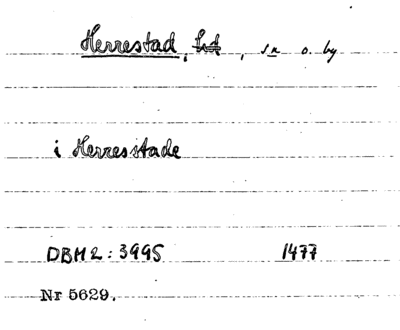 Herrestad, hd, sn o. by
i Herresstade
DBM 2: 3995 1477
Nr 5629.